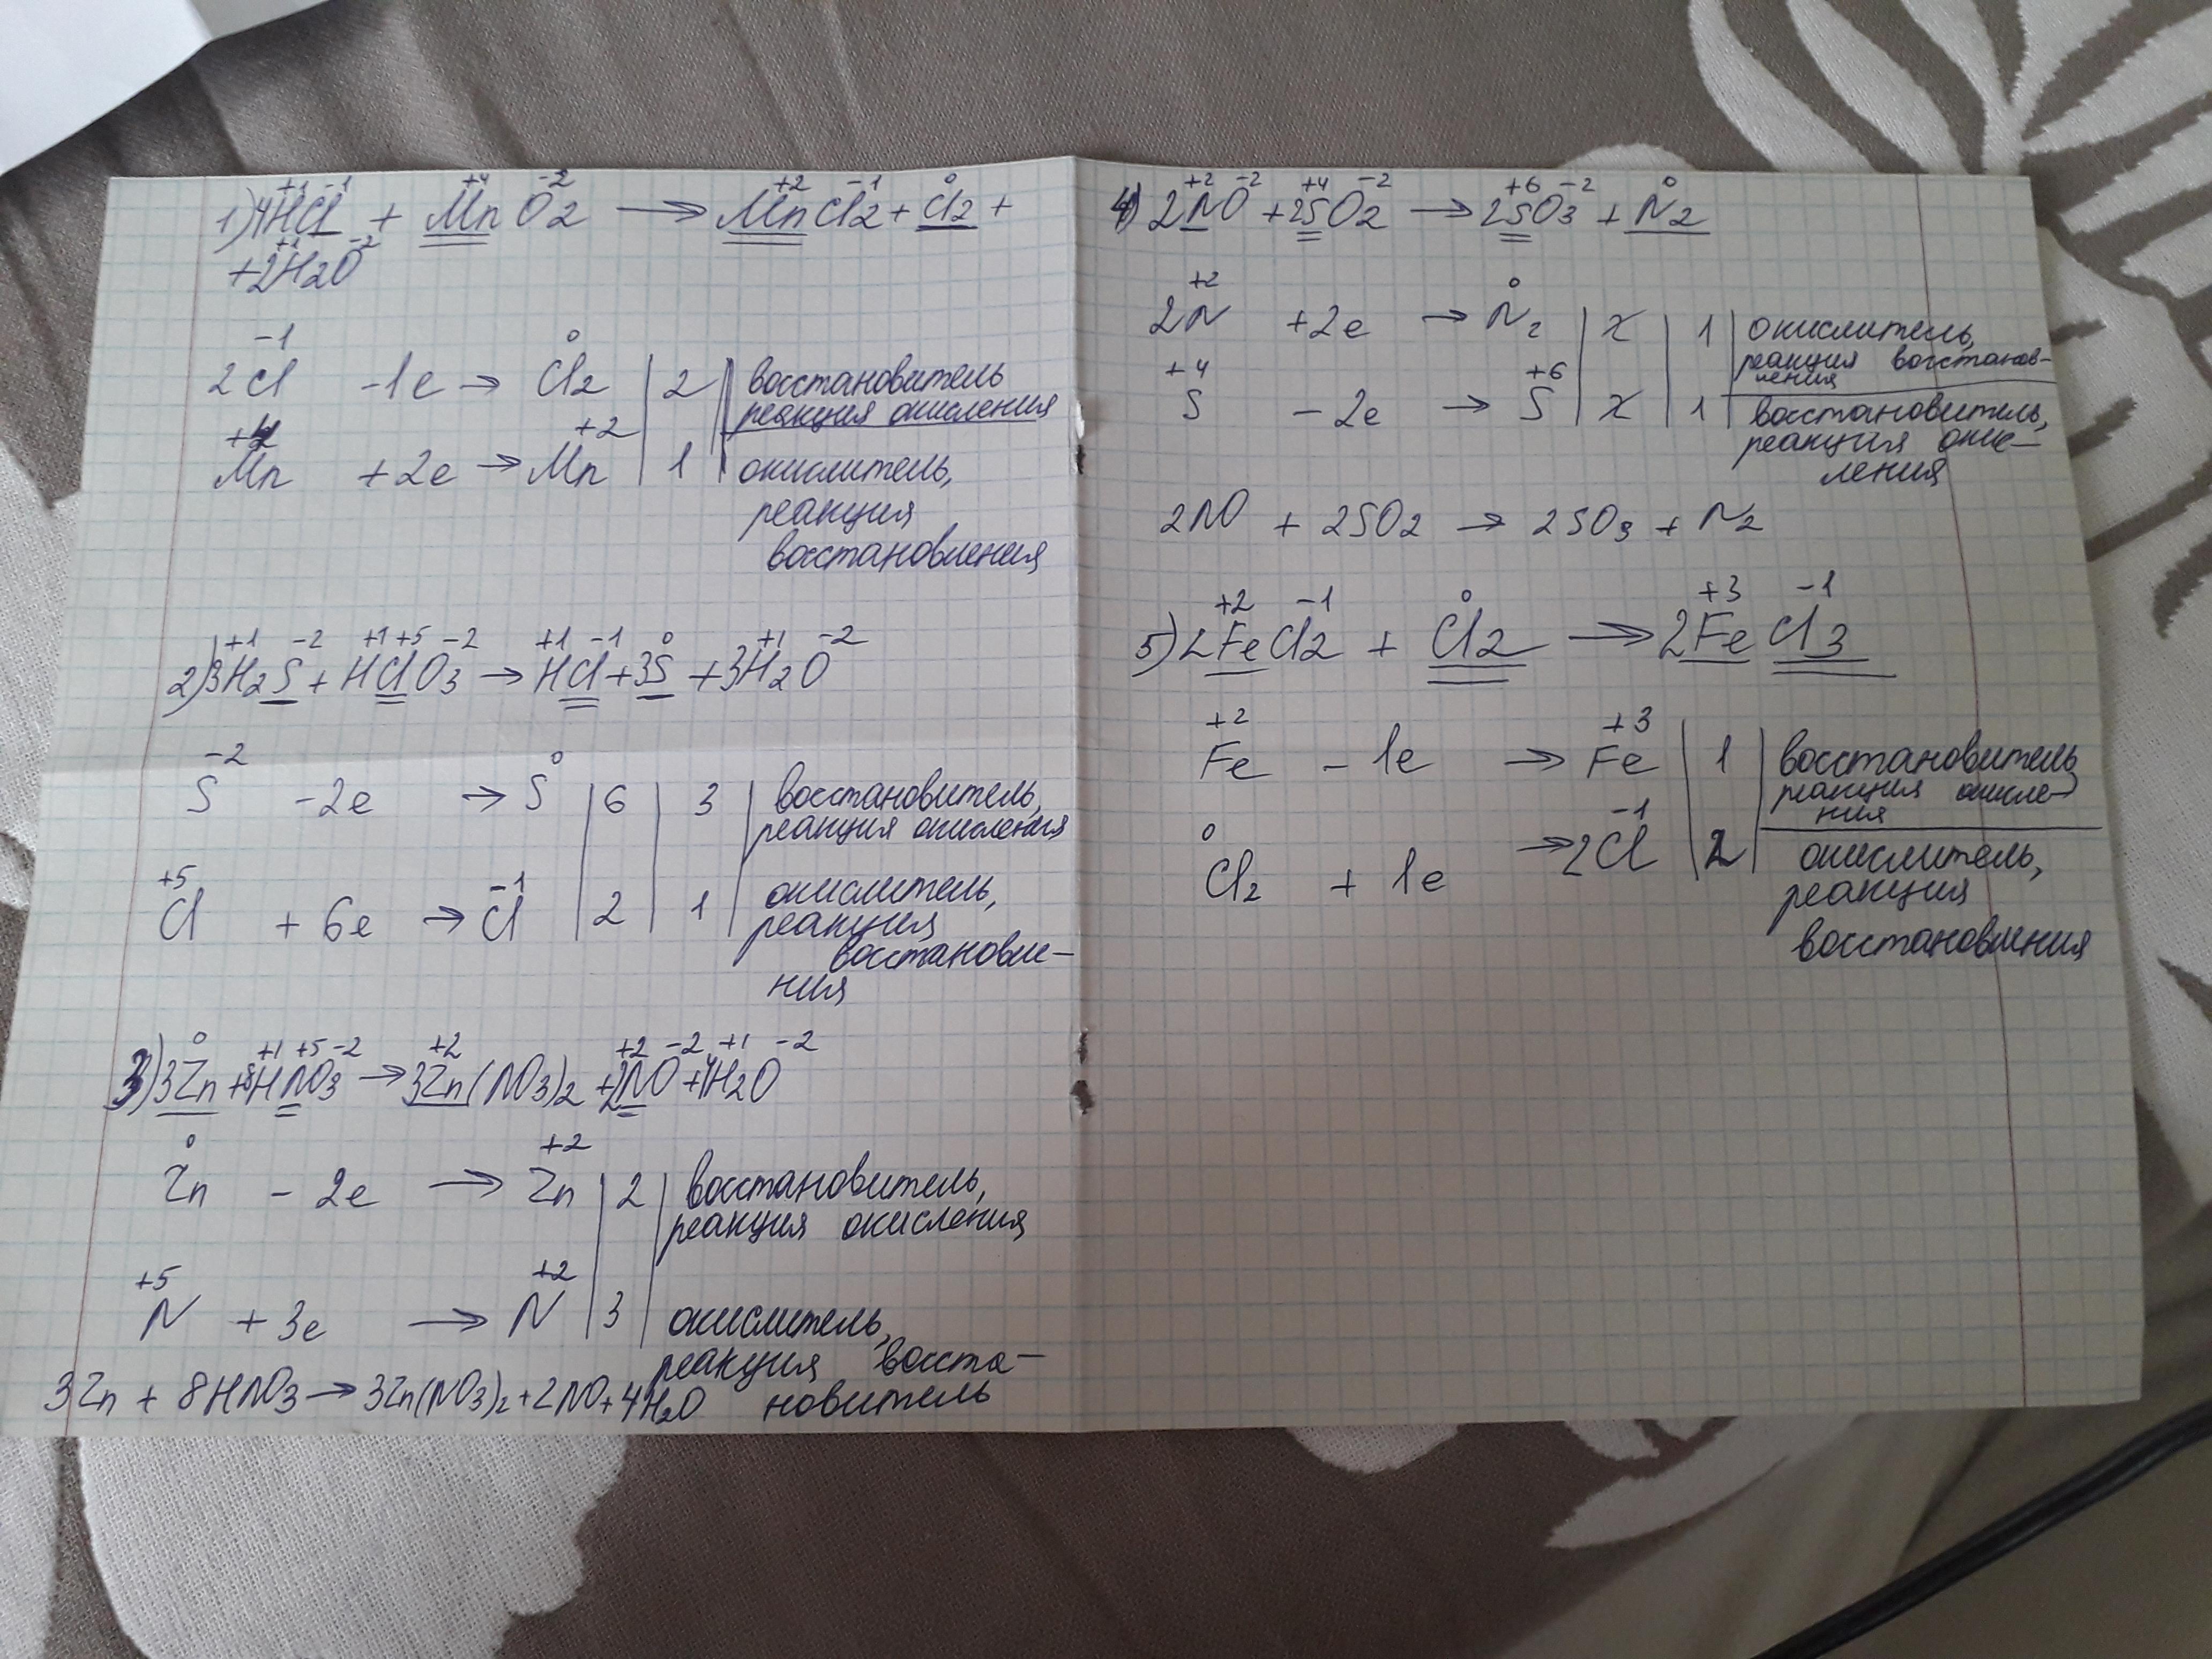 +1 -1 +4 -2 +2 -1 0
1) 4HCl + MnO2 → MnCl2 + Cl2 +
+1 -2
+2H2O
-1 0
2Cl -1e → Cl2 | 2 | восстановитель
реакция окисления
+4 +2
Mn +2e → Mn | 1 | окислитель,
реакция
восстановления
+1 -2 +1 +5 -2 +1 -1 0 +1 -2
2) 3H2S + HClO3 → HCl + 3S + 3H2O
-2 0
S -2e → S | 6 | 3 | восстановитель,
реакция окисления
+5 -1
Cl + 6e → Cl | 2 | 1 | окислитель,
реакция
восстановле-
ния
0 +1 +5 -2 +2 +2 -2 +1 -2
3) 3Zn + 8HNO3 → 3Zn(NO3)2 + 2NO + 4H2O
0 +2
Zn - 2e → Zn | 2 | восстановитель,
реакция окисления
+5 +2
N + 3e → N | 3 | окислитель,
реакция восста-
новитель
3Zn + 8HNO3 → 3Zn(NO3)2 + 2NO + 4H2O
+2 -2 +4 -2 +6 -2 0
4) 2NO + 2SO2 → 2SO3 + N2
+2 0
2N +2e → N2 | 2 | 1 | окислитель,
реакция восстанов-
ления
+4 +6
S - 2e → S | 2 | 1 | восстановитель,
реакция окис-
ления
2NO + 2SO2 → 2SO3 + N2
+2 -1 0 +3 -1
5) 2FeCl2 + Cl2 → 2FeCl3
+2 +3
Fe - 1e → Fe | 1 | восстановитель
реакция окисле-
ния
0 -1
Cl2 + 1e → 2Cl | 2 | окислитель,
реакция
восстановления